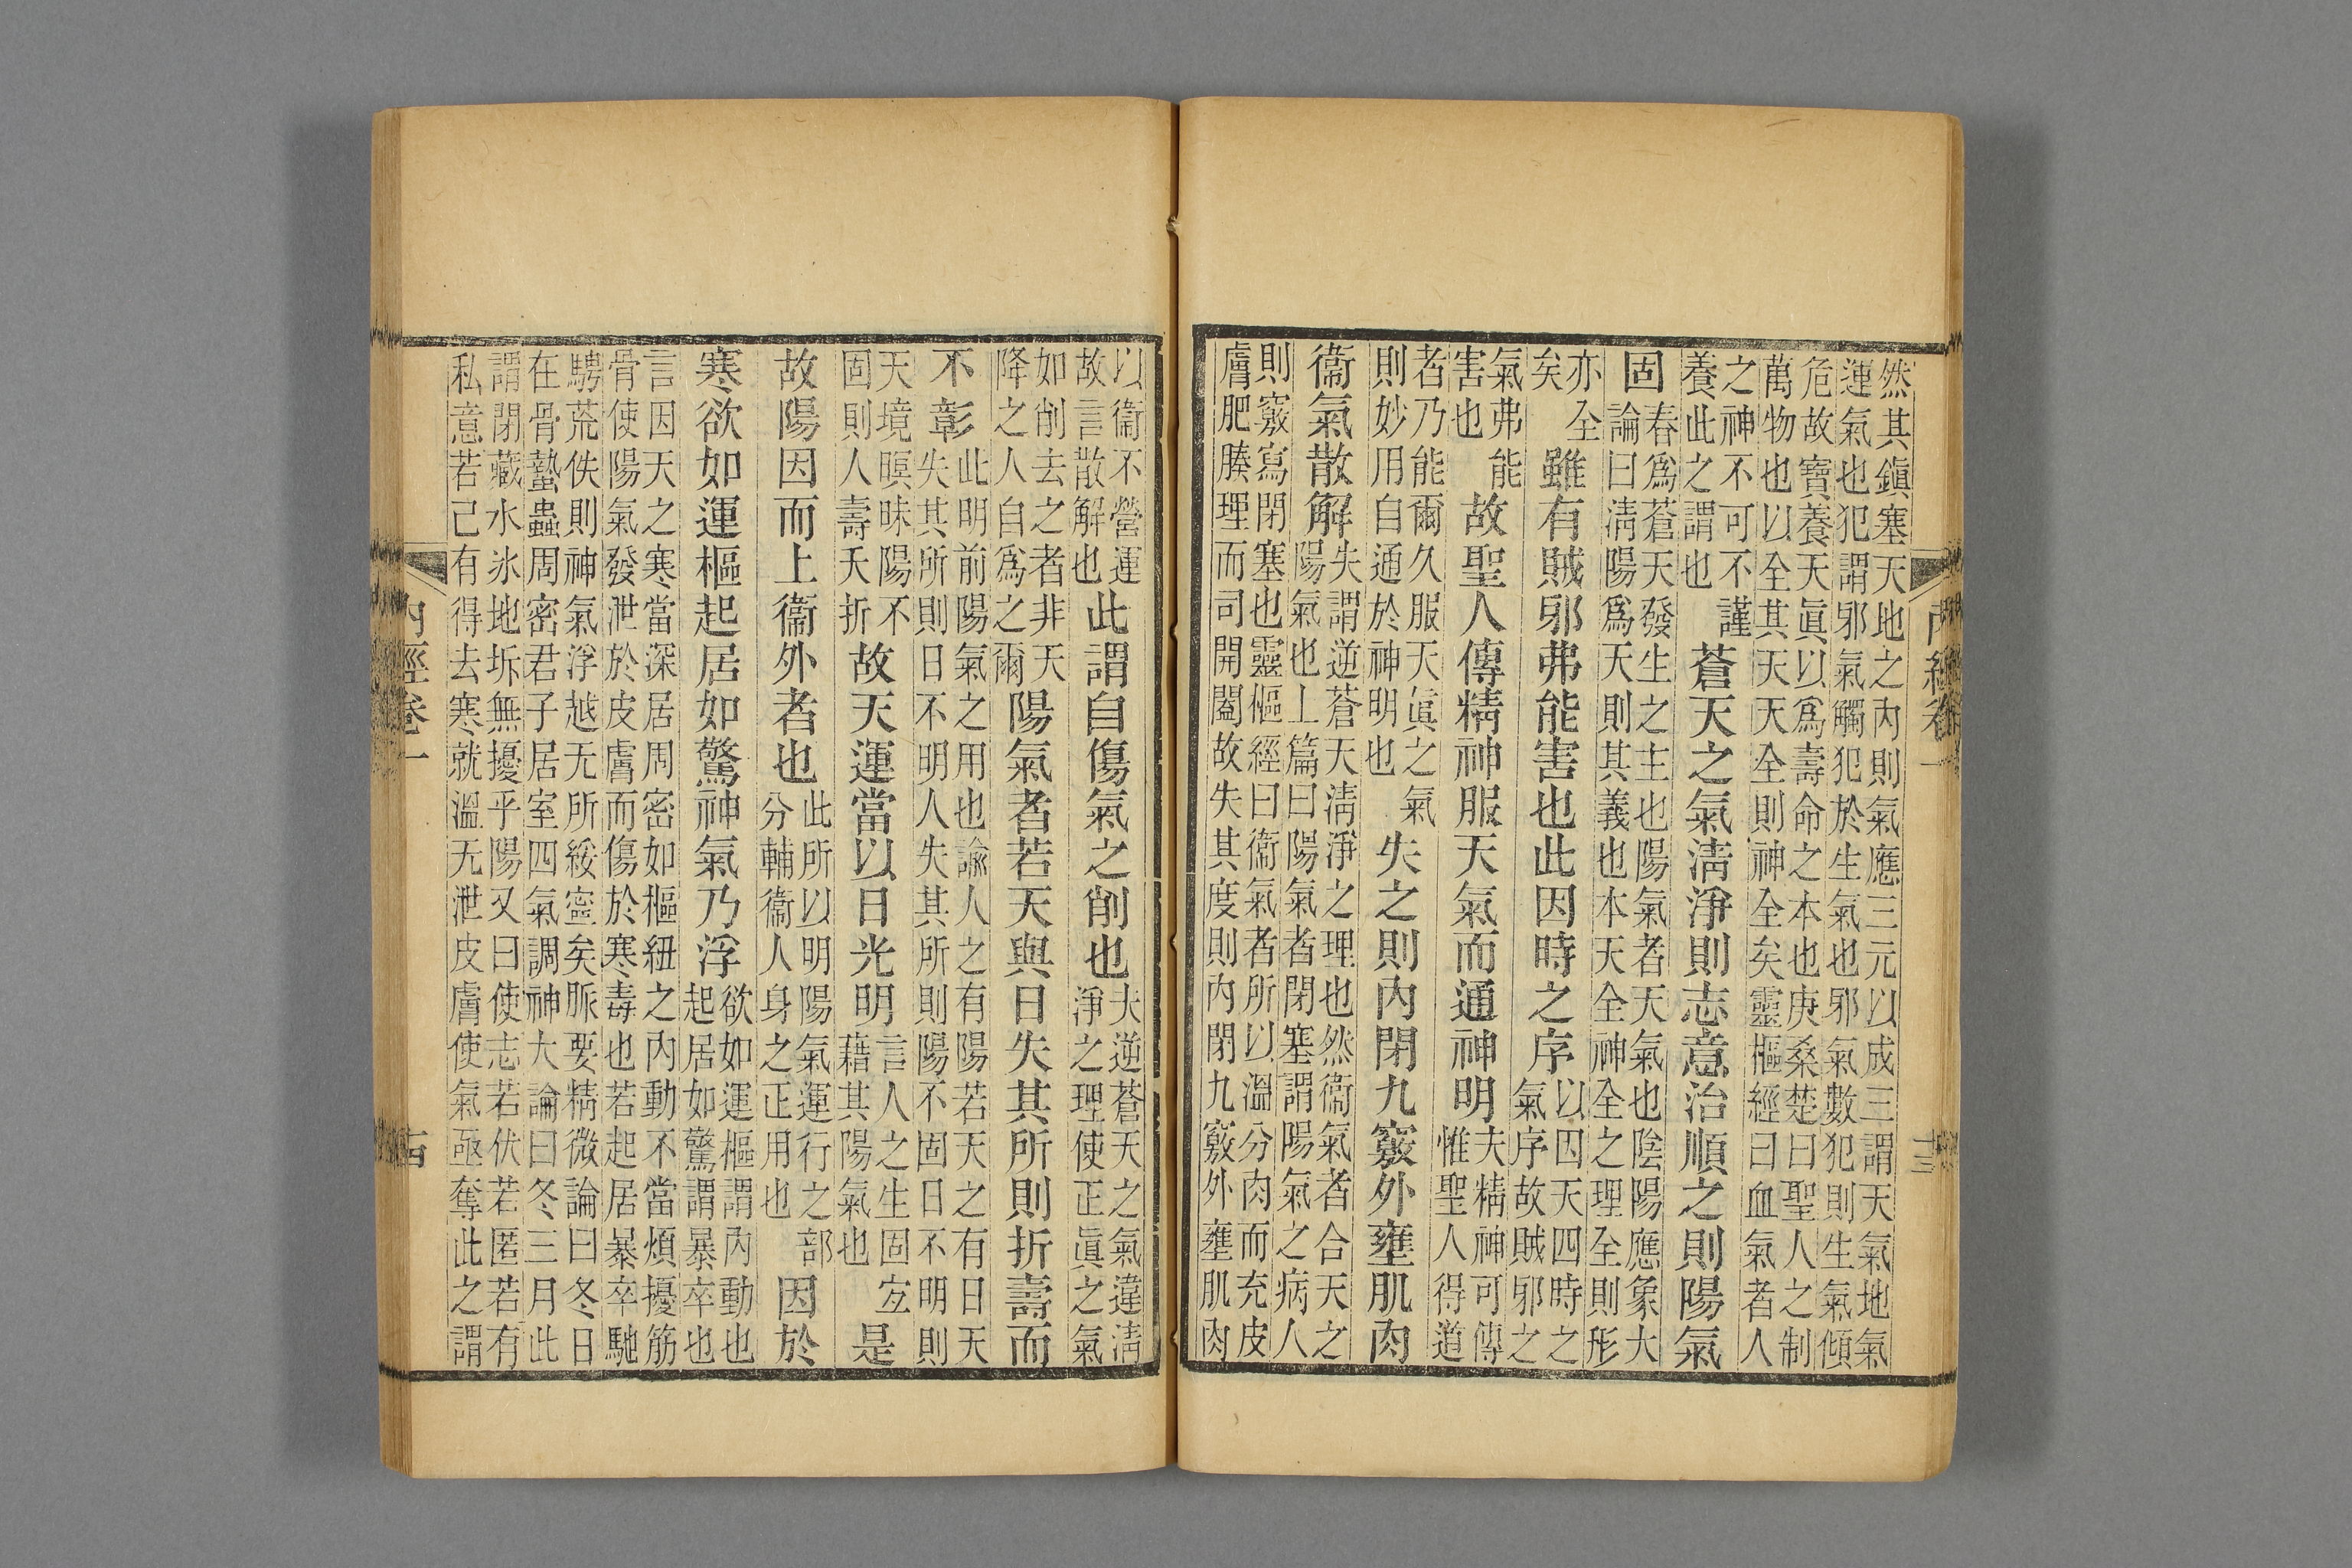 然其鎮塞天地之內則氣應三元以成三謂天氣地氣
運氣也犯謂邪氣觸犯於生氣也邪氣數犯則生氣傾
危故寶養天眞以爲壽命之本也庚桑楚曰聖人之制
萬物也以全其天天全則神全矣靈樞經曰血氣者人
之神不可不謹
養此之謂也
蒼天之氣淸淨則志意治順之則陽氣
固
春爲蒼天發生之主也陽氣者天氣也陰陽應象大
論曰淸陽爲天則其義也本天全神全之理全則形
亦全
矣
雖有賊邪弗能害也此因時之序
以因天四時之
氣序故賊邪之
氣弗能
害也
故聖人傳精神服天氣而通神明
夫精神可傳
惟聖人得道
者乃能爾久服天眞之氣
則妙用自通於神明也
失之則內閉九竅外壅肌肉
衞氣散解
失謂逆蒼天淸淨之理也然衞氣者合天之
陽氣也上篇曰陽氣者閉塞謂陽氣之病人
則竅寫閉塞也靈樞經曰衞氣者所以溫分肉而充皮
膚肥腠理而司開闔故失其度則內閉九竅外壅肌肉
內經卷一
十三
以衞不營運
故言散解也
此謂自傷氣之削也
夫逆蒼天之氣違淸
淨之理使正眞之氣
如削去之者非天
降之人自爲之爾
陽氣者若天與日失其所則折壽而
不彰
此明前陽氣之用也諭人之有陽若天之有日天
失其所則日不明人失其所則陽不固日不明則
天境暝昧陽不
固則人壽夭折
故天運當以日光明
言人之生固宐
藉其陽氣也
是
故陽因而上衞外者也
此所以明陽氣運行之部
分輔衞人身之正用也
因於
寒欲如運樞起居如驚神氣乃浮
欲如運樞謂內動也
起居如驚謂暴卒也
言因天之寒當深居周密如樞紐之內動不當煩擾筋
骨使陽氣發泄於皮膚而傷於寒毒也若起居暴卒馳
騁荒佚則神氣浮越无所綏寧矣脈要精微論曰冬日
在骨蟄蟲周密君子居室四氣調神大論曰冬三月此
謂閉藏水冰地坼無擾乎陽又曰使志若伏若匿若有
私意若己有得去寒就溫无泄皮膚使氣亟奪此之謂
內經卷一
十四